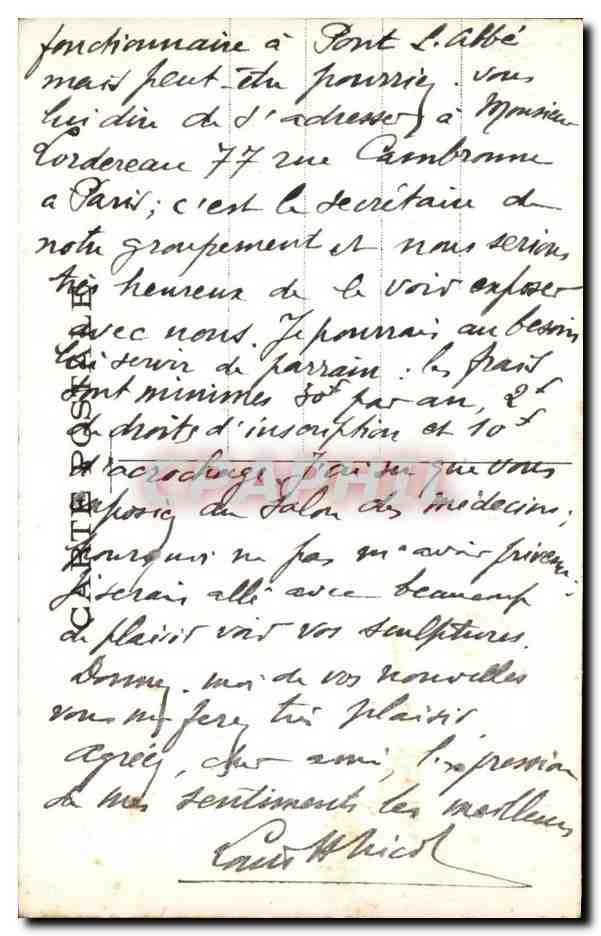 fonctionnaire à Pont L'abbé
mais peut-être pourriez-vous
lui dire de s'adresser à Monsieur
Lordereau 77 rue Cambronne
a Paris; c'est le secrétaire de
notre groupement et nous serions
très heureux de le voir exposer
avec nous. Je pourrais au besoin
lui servir de parrain : les frais
sont minimes 30f par an, 2f
de droits d'inscription et 10f
d'accrochage. J'ai su que vous
exposiez au Salon des médecins;
pourquoi ne pas m'avoir prévenu.
J'serais allé avec beaucoup
de plaisir voir vos sculptures.
Donnez-moi de vos nouvelles
vous me ferez très plaisir
Agréez, cher ami, l'expression
de mes sentiments les meilleurs
Louis H Nicol
CARTE POSTALE
CPAPHIL